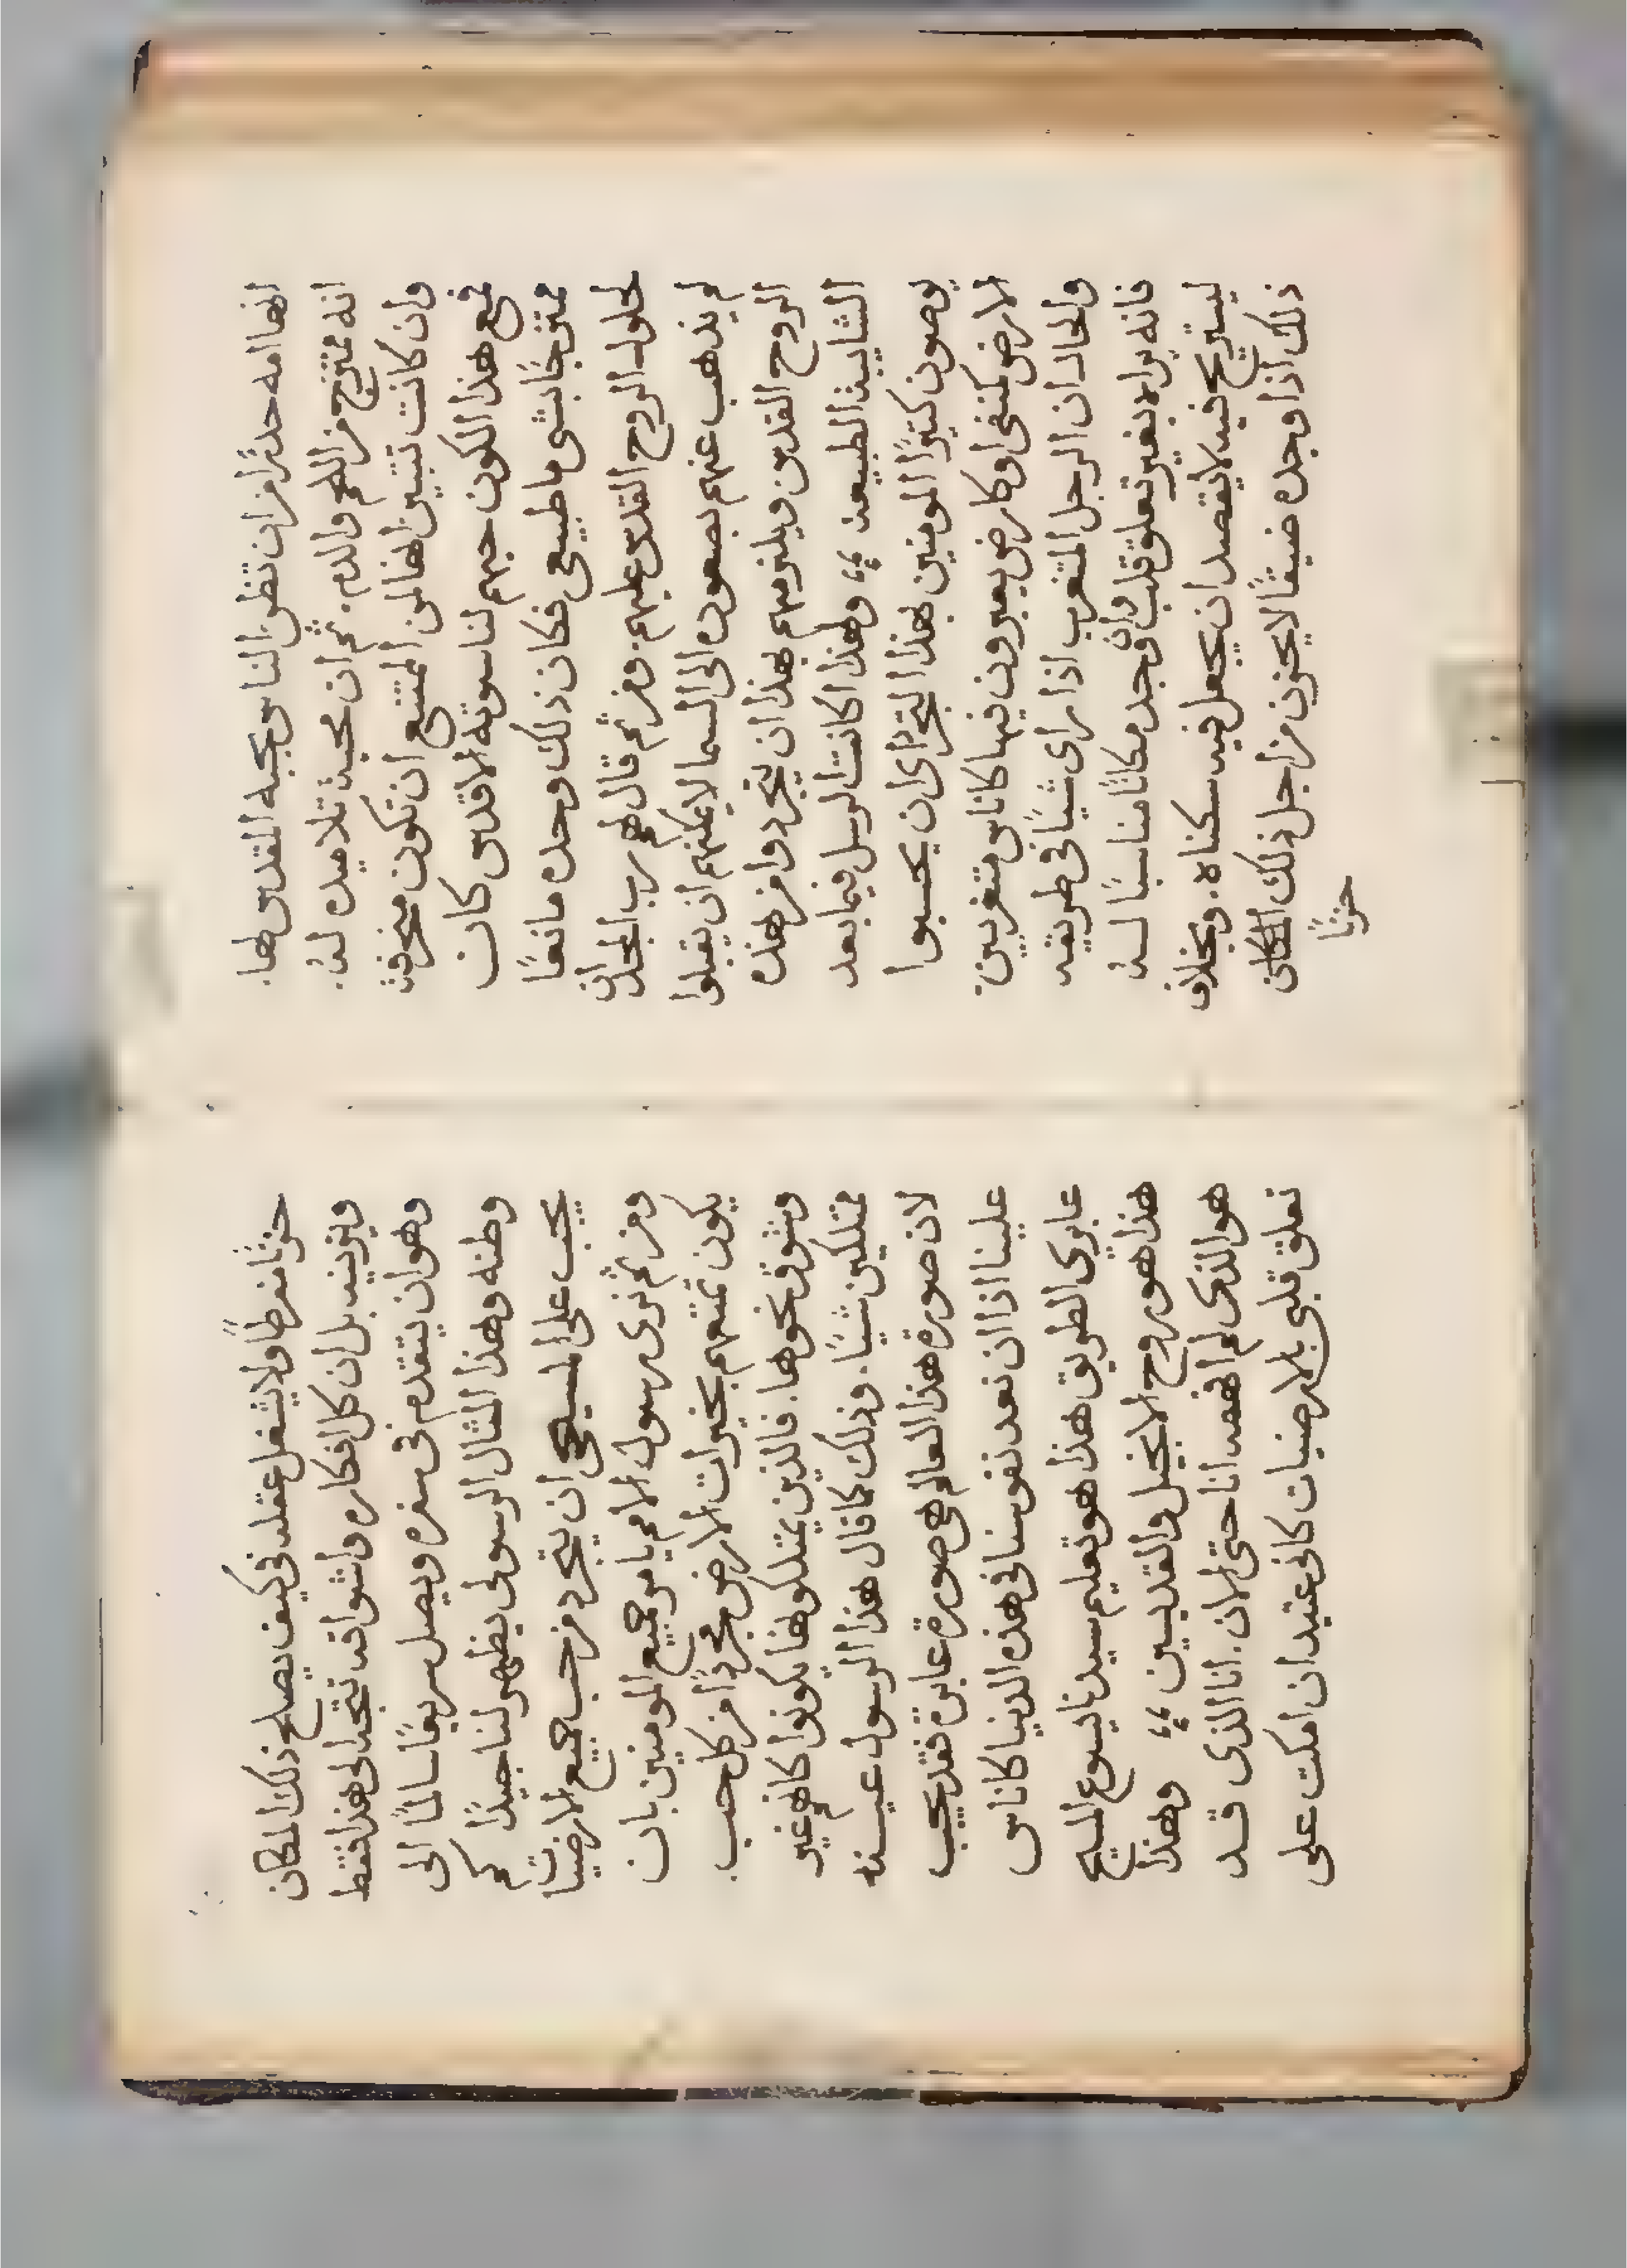 انها امه حذرًا من ان تظن الناس بحبه المقدس لها.
انه ممتزج من اللحم والدم. ثم ان محبة تلاميده له.
وان كانت تتبين انها لمن الممتنع ان تكون منحرفة
فمع هذا الكون حبهم لناسوته الاقدس كان
ممتزجًا بشى ما طبيعى فكان ذلك وحده مانعًا
لحلول الروح القدس عليهم. ومن ثم قال لهم رب المجد ان
لم يذهب عنهم بصعوده الى السما لا يمكنهم ان يقبلوا
الروح القدس ويلزمهم بهذا ان يتجردوا من هذه
الشايبة الطبيعه ،، ولهذا كانت الرسل فيما بعد
يوصون كثيرًا المومنين بهذا التجرد اى ان يحسبوا
الارض كمنفى او كارض يعبرون فيها كاناس متغربين.
والحال ان الرجل المتغرب اذا راى شيًا فى طريقه
فانه يراه بغير تعلق قلب وان وجد مكانًا مناسبًا له
ليستريح فيه لا يقصد ان يجعل فيه سكناه. وبخلاف
ذلك اذا وجده ضيقًا لا يحزن من اجل ذلك المكان
حزنًا
حزنًا مفرطًا ولا يشغل عقله فى كيف يصلح ذلك المكان
ويزينه بل ان كل افكاره واشواقه تتجه الى هذا فقط
وهو ان يتقدم فى سفره ويصل سريعًا سالمًا الى
وطنه وهذا المثال الرسولى يظهر لنا جيدًا كم
يجب على المسيحى ان يتجرد من حب جميع الارضيات
ومن ثم نرى رسول الامم يامر جميع المومنين بان
يكون تمتعهم بخيرات الارض مجردًا من كل حب.
وشوق نحوها. فالذين يمتلكوها يكونوا كانهم غير
ممتلكين شيًا. وذلك كما قال هذا الرسول عينه
لان صورة هذا العالم هى صورة عابرة فقد يجب
علينا اذا ان نعد نفوسنا فى هذه الدنيا كاناس
عابرى الطريق هذا هو تعليم سيدنا يسوع المسيح
هذا هو روح الانجيل والقديسين ،، وهذا
هو الذى لم افهمه انا حتى الان. انا الذى قد
تعلق قلبى بالارضيات كانى عتيد ان امكث على